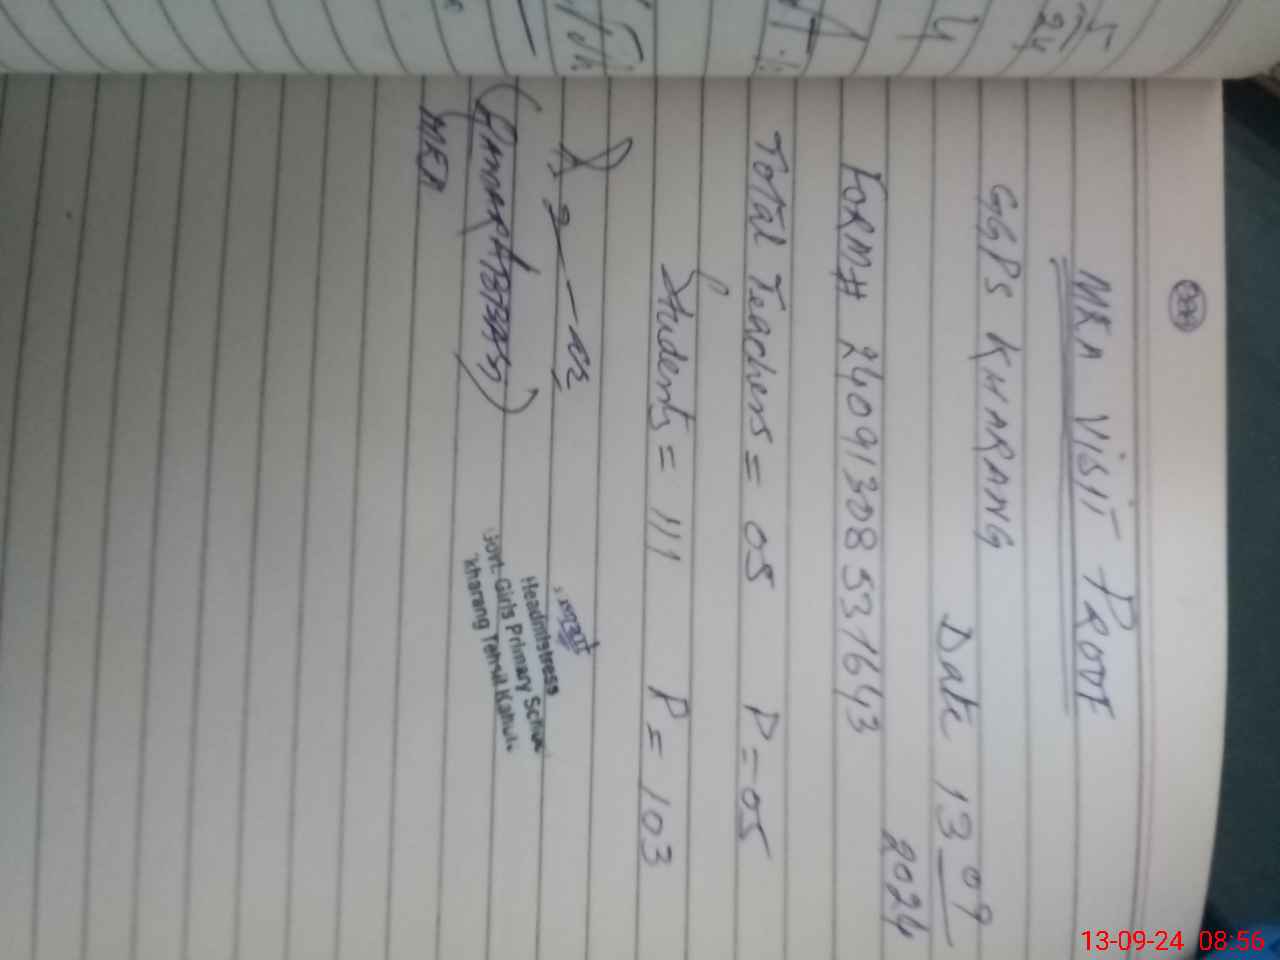 MEA VISIT PROOF
GGPS KHARANG
Date 13 09
2024
FORM# 2409130853 1643
Total Teachers = 05 P=05
Students = 111 P= 103
MEA
Headmistress
Govt. Girls Primary School
Kharang Tehsil
13-09-24 08:56